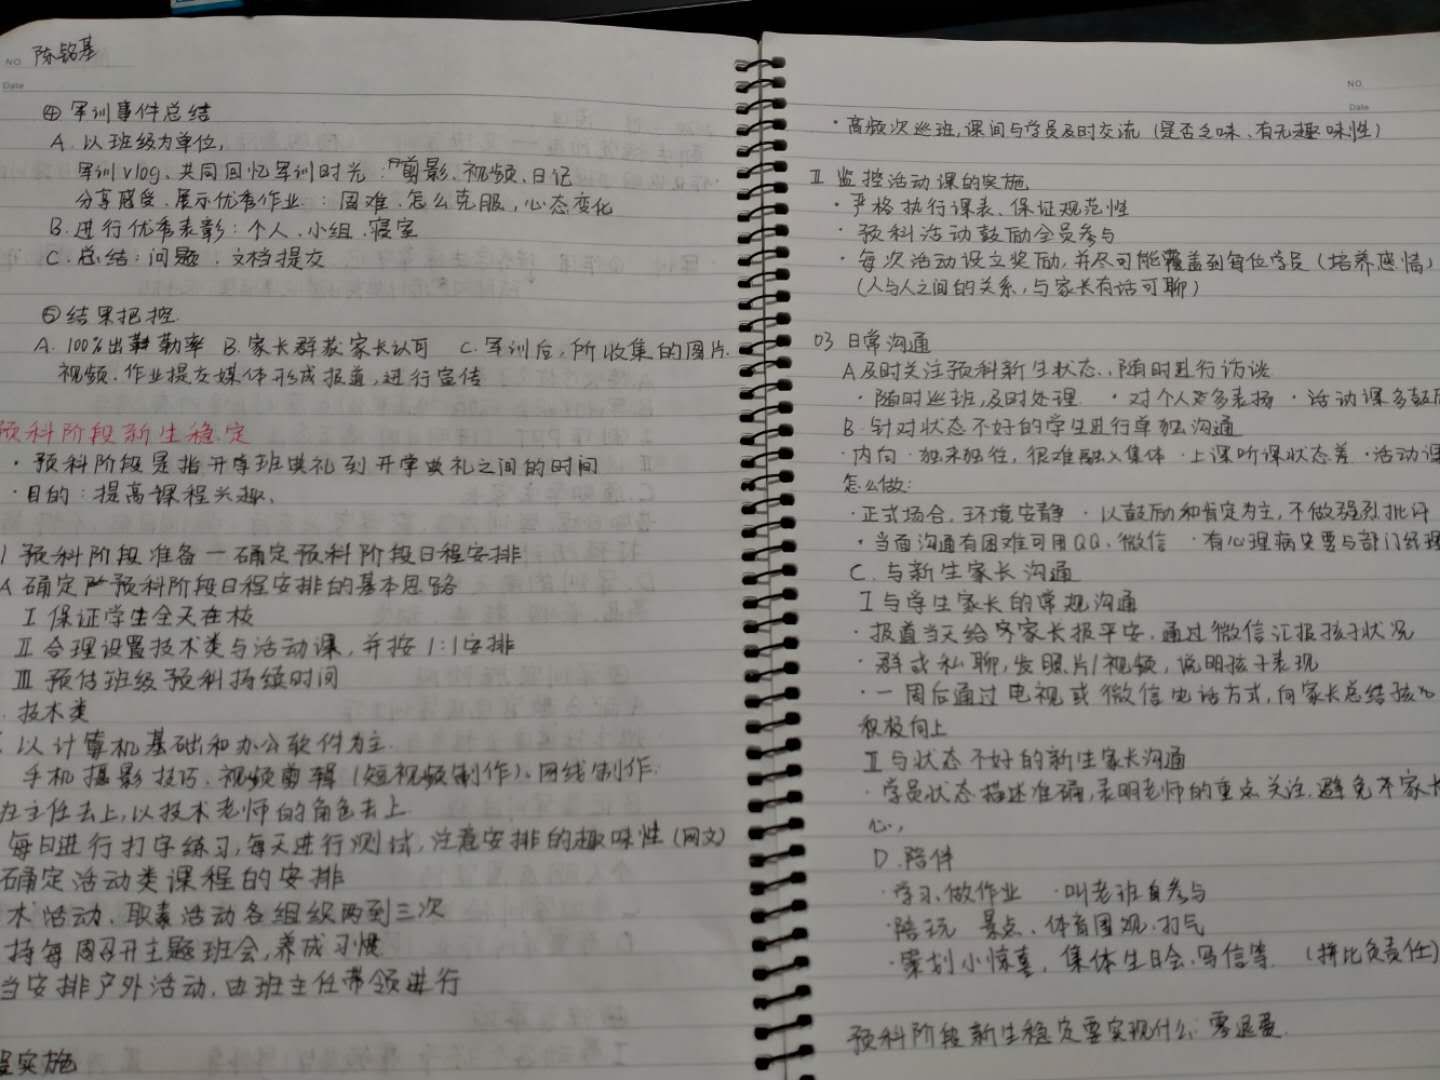 NO. 陈铭基
Date
④ 军训事件总结
A. 以班级为单位,
军训vlog、共同回忆军训时光:剪影、视频、日记
分享感受、展示优秀作业:困难、怎么克服,心态变化
B. 进行优秀表彰:个人、小组、寝室
C. 总结:问题、文档提交
⑤结果把控
A. 100%出勤率 B. 家长群获家长认可 C. 军训后,所收集的图片、
视频、作业提交媒体形成报道,进行宣传
预科阶段新生稳定
· 预科阶段是指开班典礼到开学典礼之间的时间
· 目的:提高课程兴趣、
1 预科阶段准备一确定预科阶段日程安排
A 确定预科阶段日程安排的基本思路
Ⅰ 保证学生全天在校
Ⅱ 合理设置技术类与活动课,并按1:1安排
Ⅲ 预估班级预科持续时间
技术类
以计算机基础和办公软件为主.
手机摄影技巧、视频剪辑(短视频制作)、网线制作.
主任去上,以技术老师的角色去上
每日进行打字练习,每天进行测试,注意安排的趣味性(网文)
确定活动类课程的安排
术活动、取素活动各组织两到三次
持每周召开主题班会,养成习惯
当安排户外活动,由班主任带领进行
实施
NO.
Date
· 高频次巡班,课间与学员及时交流(是否乏味、有无趣味性)
Ⅱ 监控活动课的实施
· 严格执行课表、保证规范性
· 预科活动鼓励全员参与
· 每次活动设立奖励,并尽可能覆盖到每位学员(培养感情)
(人与人之间的关系,与家长有话可聊)
03 日常沟通
A 及时关注预科新生状态、随时进行访谈
· 随时巡班,及时处理 · 对个人更多表扬 · 活动课多鼓
B. 针对状态不好的学生进行单独沟通
· 内向 · 独来独往,很难融入集体 · 上课听课状态差 · 活动课
怎么做:
· 正式场合,环境安静 · 以鼓励和肯定为主,不做强烈批评
· 当面沟通有困难可用QQ、微信 · 有心理病史要与部门经理
C. 与新生家长沟通
Ⅰ 与学生家长的常规沟通
· 报道当天给家长报平安,通过微信汇报孩子状况
· 群或私聊,发照片/视频,说明孩子表现
· 一周后通过电视或微信电话方式,向家长总结孩
积极向上
Ⅱ 与状态不好的新生家长沟通
· 学员状态描述准确,表明老师的重点关注,避免不家长
心,
D. 陪伴
· 学习、做作业 · 叫老班自参与
· 陪玩 景点、体育围观、打气
· 策划小惊喜,集体生日会、写信等 (拼比负责任)
预科阶段新生稳定要实现什么:零退费